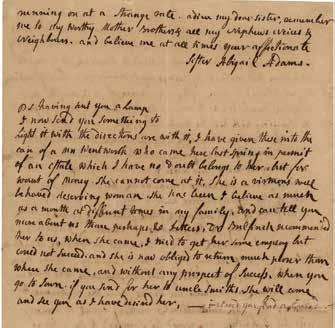 running on at a strange rate. adieu my dear sister, remember
me to my worthy Mother Brothers & all my Nephews Nieces &
Neighbours. and believe me at all times your affectionate
Sister Abigail Adams.
p s. having sent you a Lamp
I now send you something to
Light it with the directions are with it, I have given these into the
care of a mrs Wentworth who came here last spring in persuit
of an estate which I have no doubt belongs to her. but for
want of money she cannot come at it. She is a virtuous well
behaved deserving woman she has been I believe as much
as a month at different times in my family, and can tell you
more about us than perhaps, 20 Letters, Dr Bulfinch recommended
her to us, when she came, I tried to get her some employ but
could not succeed. and she is now obliged to return much poorer than
when she came, and without any prospect of Success, when you
go to Town. if you send for her to uncle Smiths she will come
and see you as I have desired her,